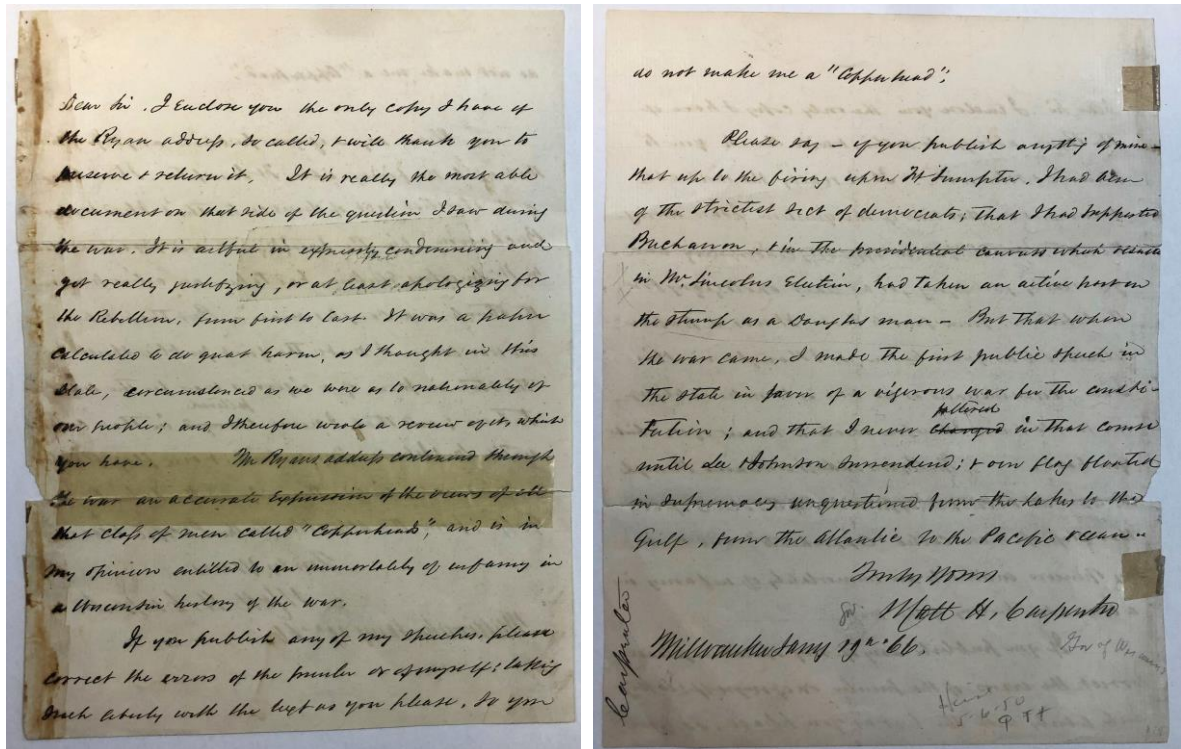 Dear Sir. I Enclose you the only copy I have of
the Ryan address, so called, & will thank you to
preserve & return it. It is really the most able
document on that side of the question I saw during
the war. It is artful in expressly condemning and
yet really justifying, or at least apologizing for
the Rebellion, from first to last. It was a paper
calculated to do great harm, as I thought in this
State, circumstanced as we were as to nationality of
our people; and I therefore wrote a review of it which
you have. Mr Ryans address continued through
the war an accurate expression of the views of all
that class of men called "Copperheads", and is in
my opinion entitled to an immortality of infamy in
a Wisconsin history of the war.
If you publish any of my speeches, please
correct the errors of the printer or of myself; taking
such liberty with the text as you please, so you
do not make me a "Copperhead";
Please say – if you publish anything of mine –
that up to the firing upon Ft Sumpter, I had been
of the strictest sect of democrats; that I had supported
Buchanon, & in the presidential canvass which resulted
in Mr. Lincolns Election, had taken an active part on
the stump as a Douglas man – But that when
the war came, I made the first public speech in
the state in favor of a vigorous war for the consti-
faltered
tution; and that I never changed in that course
until Lee & Johnson surrendered; & our flag floated
in supremacy unquestioned from the lakes to the
Gulf, from the Atlantic to the Pacific ocean –
Truly Yours
Matt H. Carpenter
Milwaukee Jany 19th '66.
Carpenter